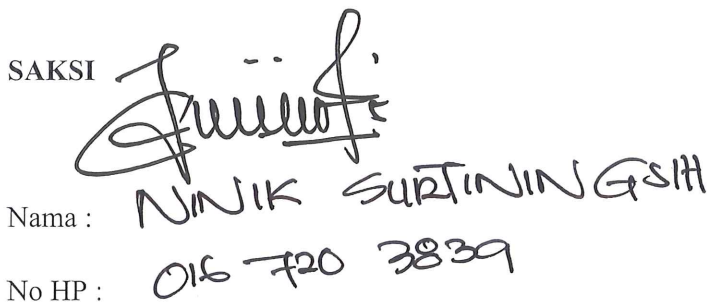 SAKSI
Nama : NINIK SURTININGSIH
No HP : 016 720 3839